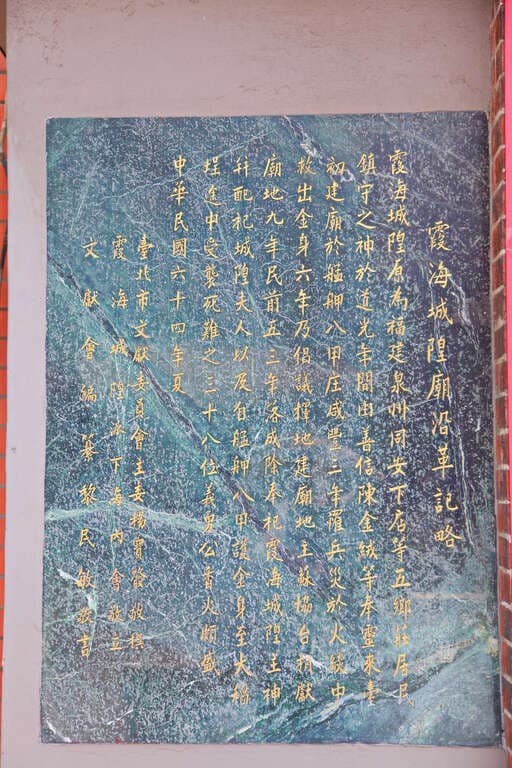 霞海城隍廟沿革記略
霞海城隍原為福建泉州同安下店等五鄉莊居民
鎮守之神於道光年間由善信陳金絨等奉靈來臺
初建廟於艋舺八甲庄咸豐三年罹兵災於火燄中
救出金身六年乃倡議擇地建廟地主蘇協台捐獻
廟地九年民前五三年落成除奉祀霞海城隍主神
并配祀城隍夫人以及自艋舺八甲護金身至大稻
埕途中受襲死難之三十八位義勇公香火頗盛
中華民國六十四年夏
臺北市文獻委員會主委楊寶發敬撰
霞海城隍 下海內會敬立
文獻會編纂黎民敏敬書